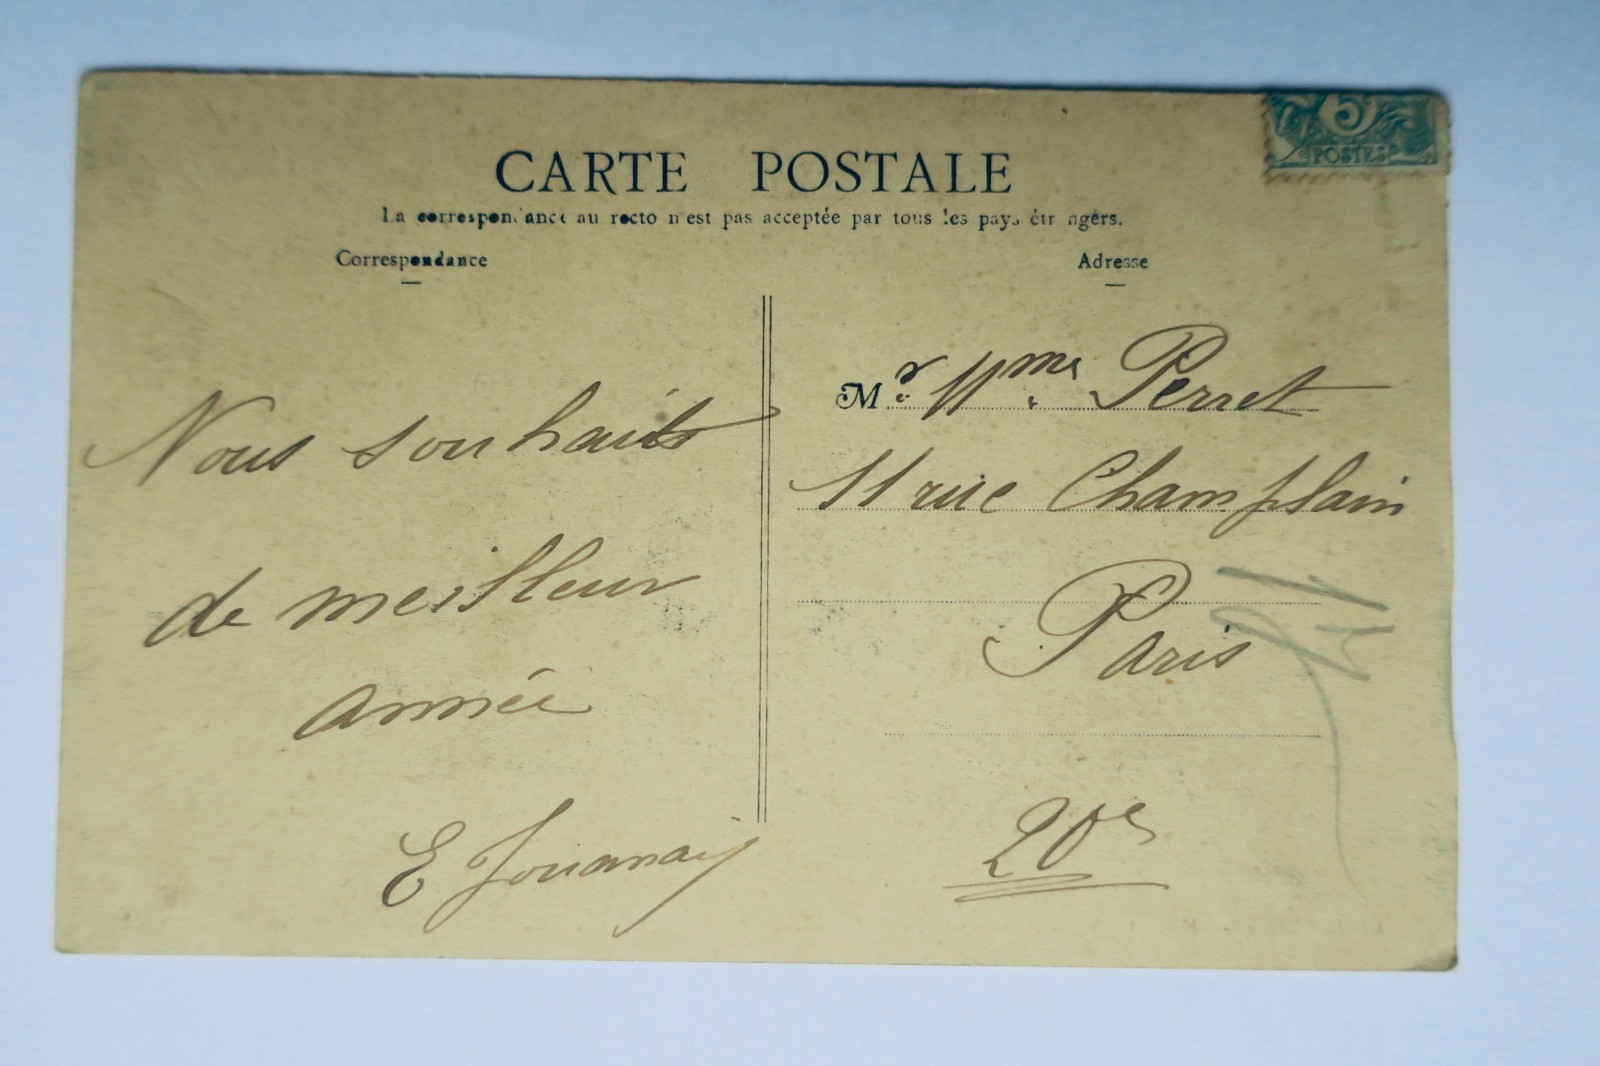 5
POSTES
CARTE POSTALE
La correspondance au recto n'est pas acceptée par tous les pays étrangers.
Correspondance
Adresse
Nous souhaits
de meilleur
année
E Jouanay
Mr. Mme Perret
11 rue Champlain
Paris
20es